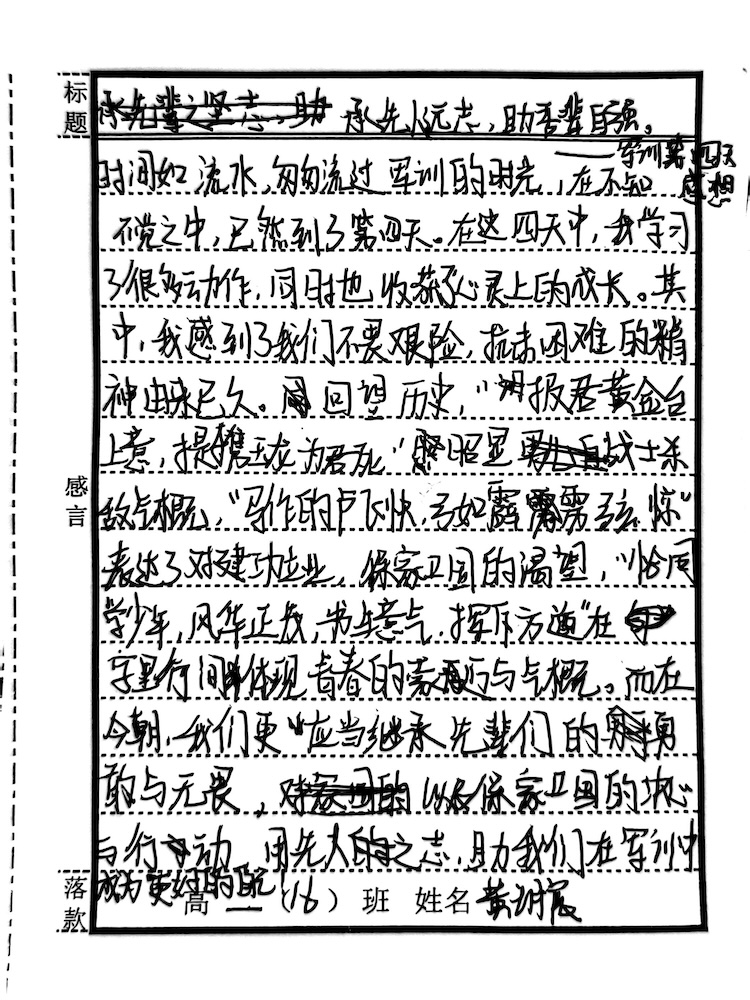 标题
承先人远志，助吾辈自强。
——军训第四天
感想
时间如流水，匆匆流过军训的时光，在不知
不觉之中，已然到了第四天。在这四天中，我学习
了很多动作，同时也收获了心灵上的成长。其
中，我感到了我们不畏艰险，抗击困难的精
神由来已久。回望历史，“报君黄金台
上意，提携玉龙为君死”昭显战士杀
敌气概，“马作的卢飞快，弓如霹雳弦惊”
表达了对建功立业，保家卫国的渴望，“恰同
学少年，风华正茂，书生意气，挥斥方遒”在
字里行间体现青春的豪迈与气概。而在
今朝，我们更应当继承先辈们的勇
敢与无畏，以及保家卫国的决心
与行动，用先人之志，助我们在军训中
成为更好的
感言
落款
高一（16）班 姓名 黄